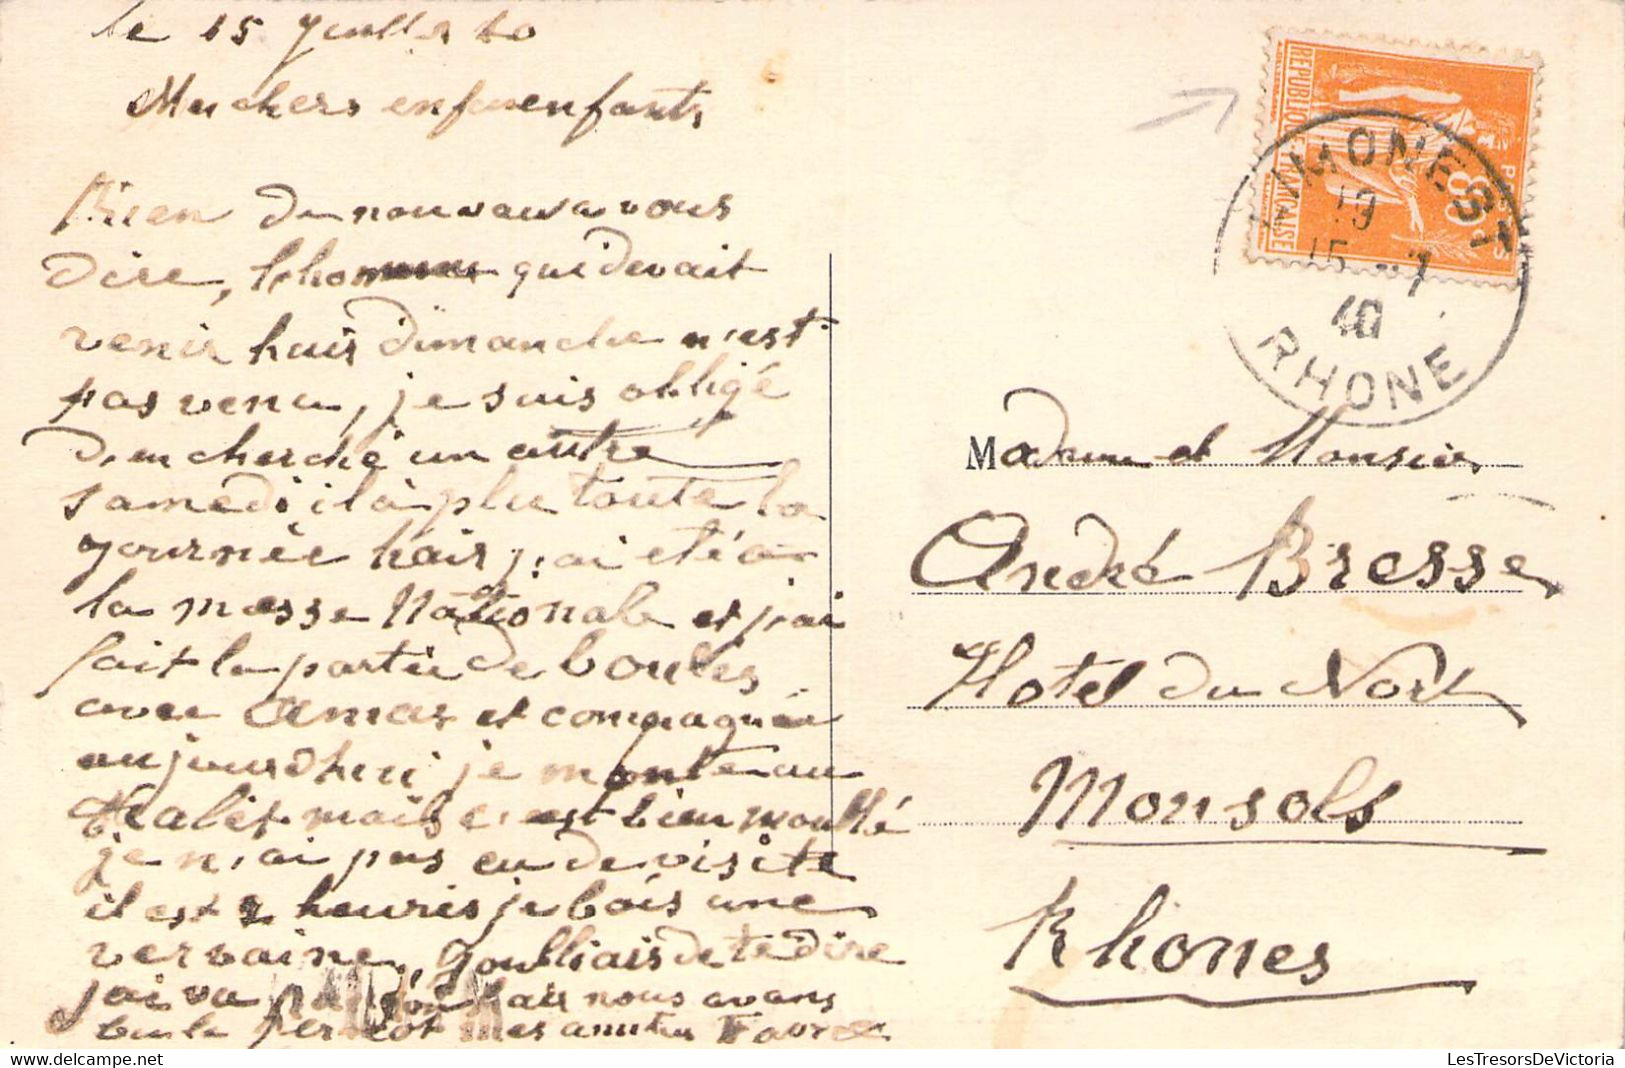 le 15 Juillet 40
chers enfants
Rien de nouveau a vous
dire, l'homme qui devait
venir hair dimanche n'est
pas venu, je suis obligé
d'en cherché un autre
samedi il a plu toute la
journèe hair j'ai eté a
la messe Nationale et j'ai
fait la partie de boules
avec et compagnée
aujourdhui je monte au
mais c'est bien mouillé
je n'ai pas eu de visite
il est 2 heures je bois une
vervaine, j'oubliais de te dire
j'ai vu hair nous avons
bu le mes amities Favre
REPUBLIQUE FRANÇAISE
POSTES
80c
LIMONEST
19
15 -7
40
RHONE
Madame et Monsieur
André Bresse
Hotel du Nord
Monsols
Rhones
LesTresorsDeVictoria
delcampe.net